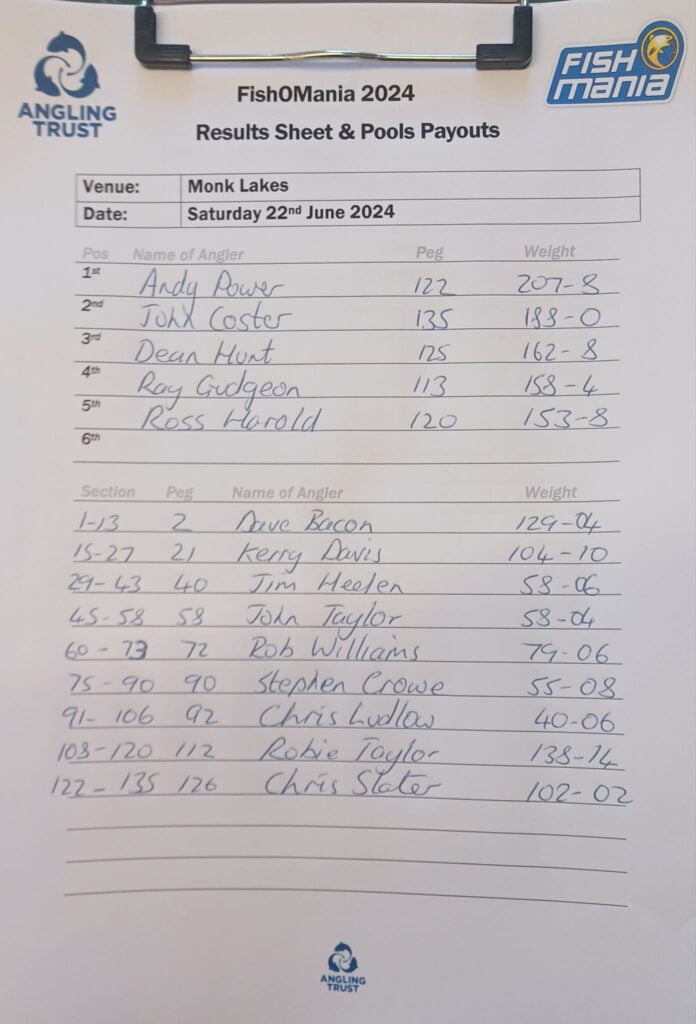 ANGLING
TRUST
FISH
MANIA
FishOMania 2024
Results Sheet & Pools Payouts
Venue: Monk Lakes
Date: Saturday 22nd June 2024
Pos Name of Angler Peg Weight
1st Andy Power 122 207-8
2nd John Coster 135 188-0
3rd Dean Hunt 125 162-8
4th Ray Gudgeon 113 158-4
5th Ross Harold 120 153-8
6th
Section Peg Name of Angler Weight
1-13 2 Dave Bacon 129-04
15-27 21 Kerry Davis 104-10
29-43 40 Jim Heelen 58-06
45-58 58 John Taylor 58-04
60-73 72 Rob Williams 79-06
75-90 90 Stephen Crowe 55-08
91-106 92 Chris Ludlow 40-06
108-120 112 Robie Taylor 138-14
122-135 126 Chris Slater 102-02
ANGLING
TRUST